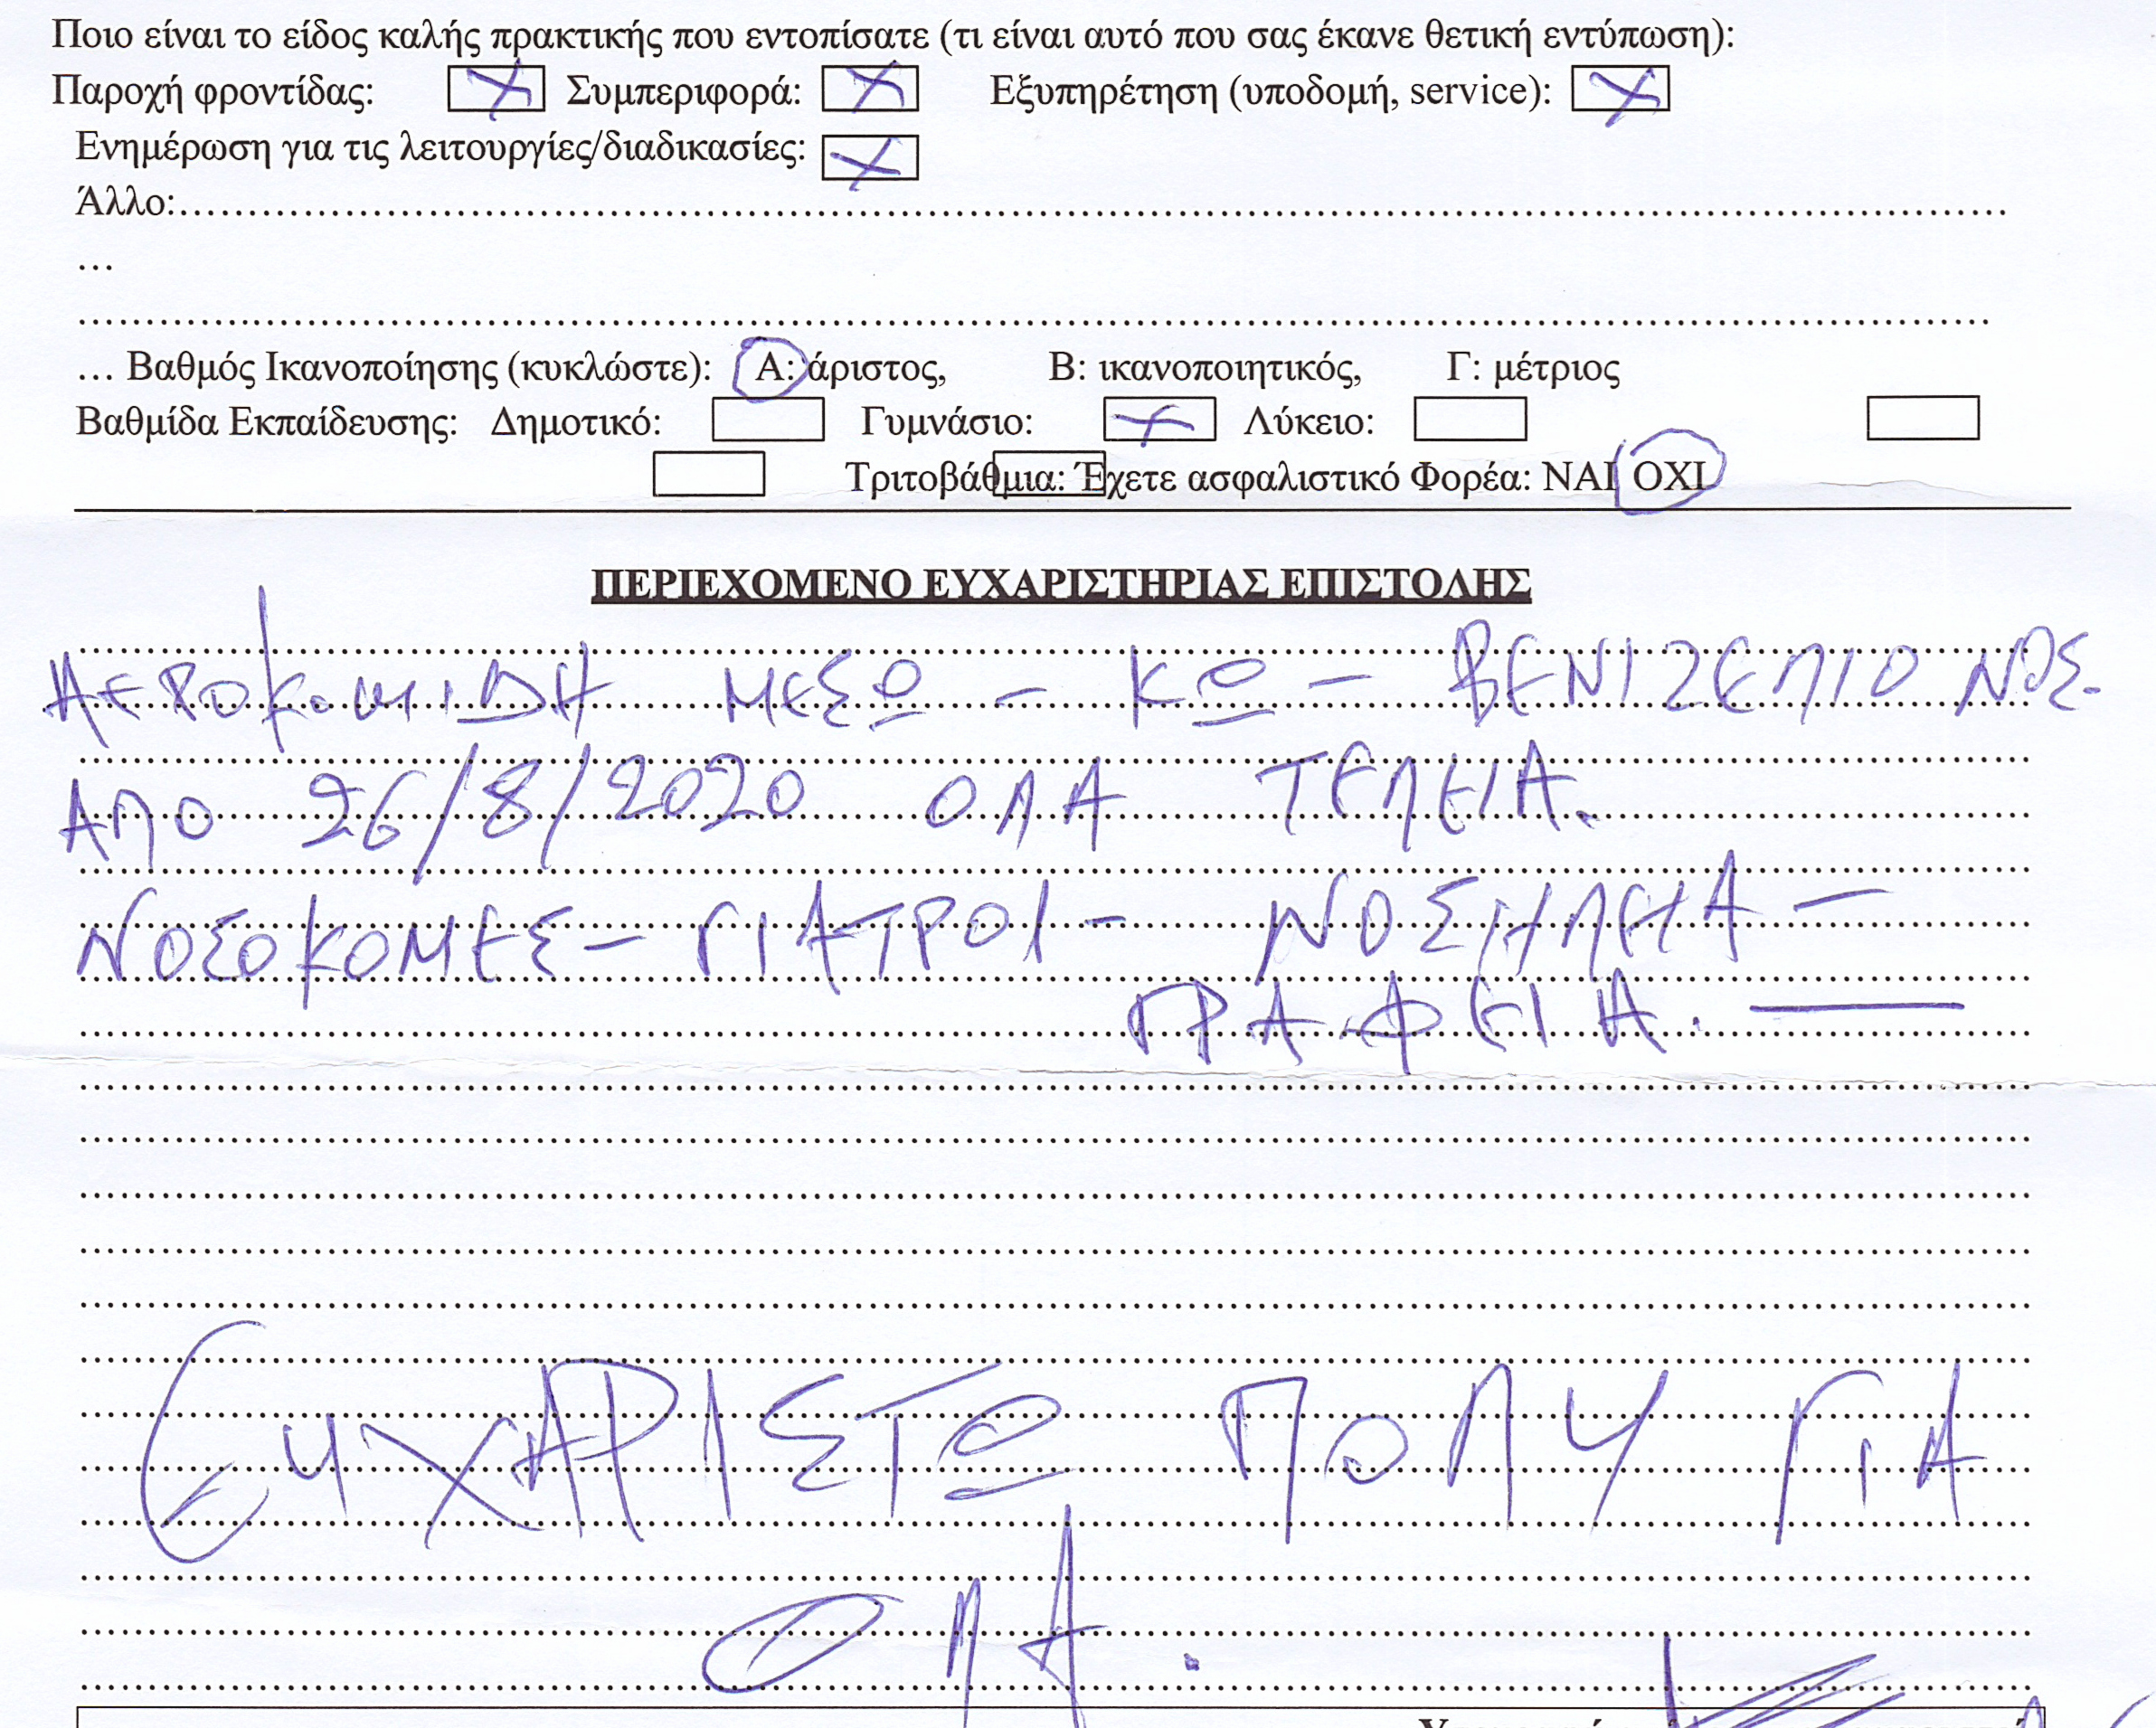 Ποιο είναι το είδος καλής πρακτικής που εντοπίσατε (τι είναι αυτό που σας έκανε θετική εντύπωση):
Παροχή φροντίδας: Συμπεριφορά: Εξυπηρέτηση (υποδομή, service):
Ενημέρωση για τις λειτουργίες/διαδικασίες:
Άλλο:……………………………………………………………………………………………
…
……………………………………………………………………………………………
… Βαθμός Ικανοποίησης (κυκλώστε): Α: άριστος, Β: ικανοποιητικός, Γ: μέτριος
Βαθμίδα Εκπαίδευσης: Δημοτικό: Γυμνάσιο: Λύκειο:
Τριτοβάθμια: Έχετε ασφαλιστικό Φορέα: ΝΑΙ ΟΧΙ
ΠΕΡΙΕΧΟΜΕΝΟ ΕΥΧΑΡΙΣΤΗΡΙΑΣ ΕΠΙΣΤΟΛΗΣ
ΑΕΡΟΚΟΜΙΔΗ ΜΕΣΩ - ΚΩ - ΒΕΝΙΖΕΛΙΟ ΝΟΣ.
ΑΠΟ 26/8/2020 ΟΛΑ ΤΕΛΕΙΑ.
ΝΟΣΟΚΟΜΕΣ - ΓΙΑΤΡΟΙ - ΝΟΣΗΛΕΙΑ -
ΓΡΑΦΕΙΑ. —
ΕΥΧΑΡΙΣΤΩ ΠΟΛΥ ΓΙΑ
ΟΛΑ.